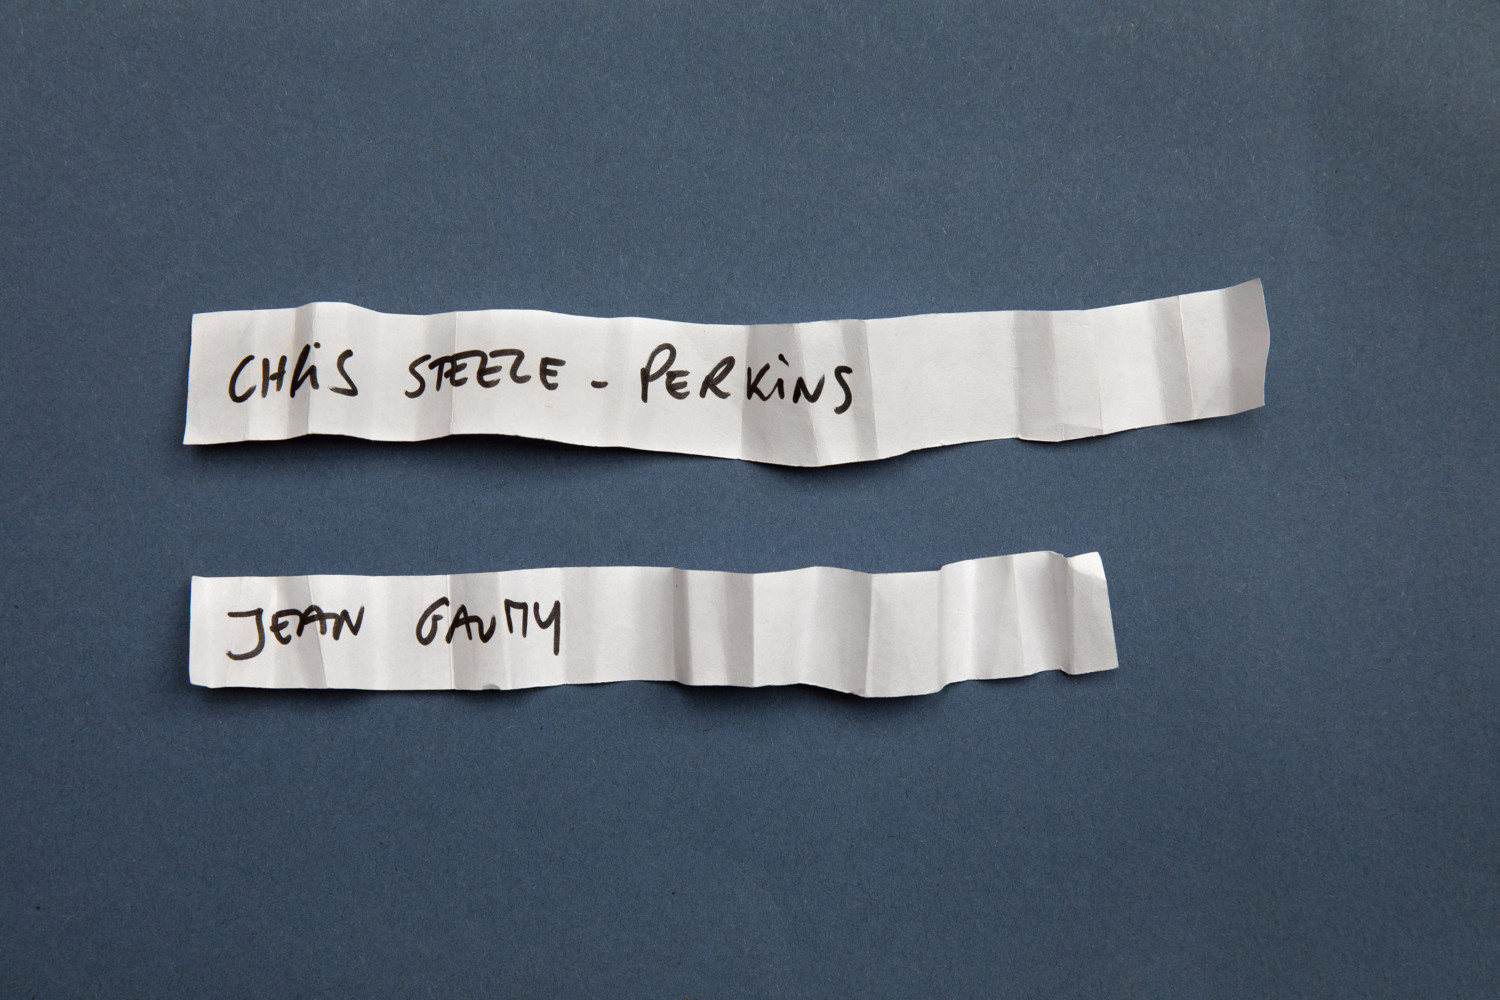 CHRiS STEELE - PERKiNS
JEAN GAUMY